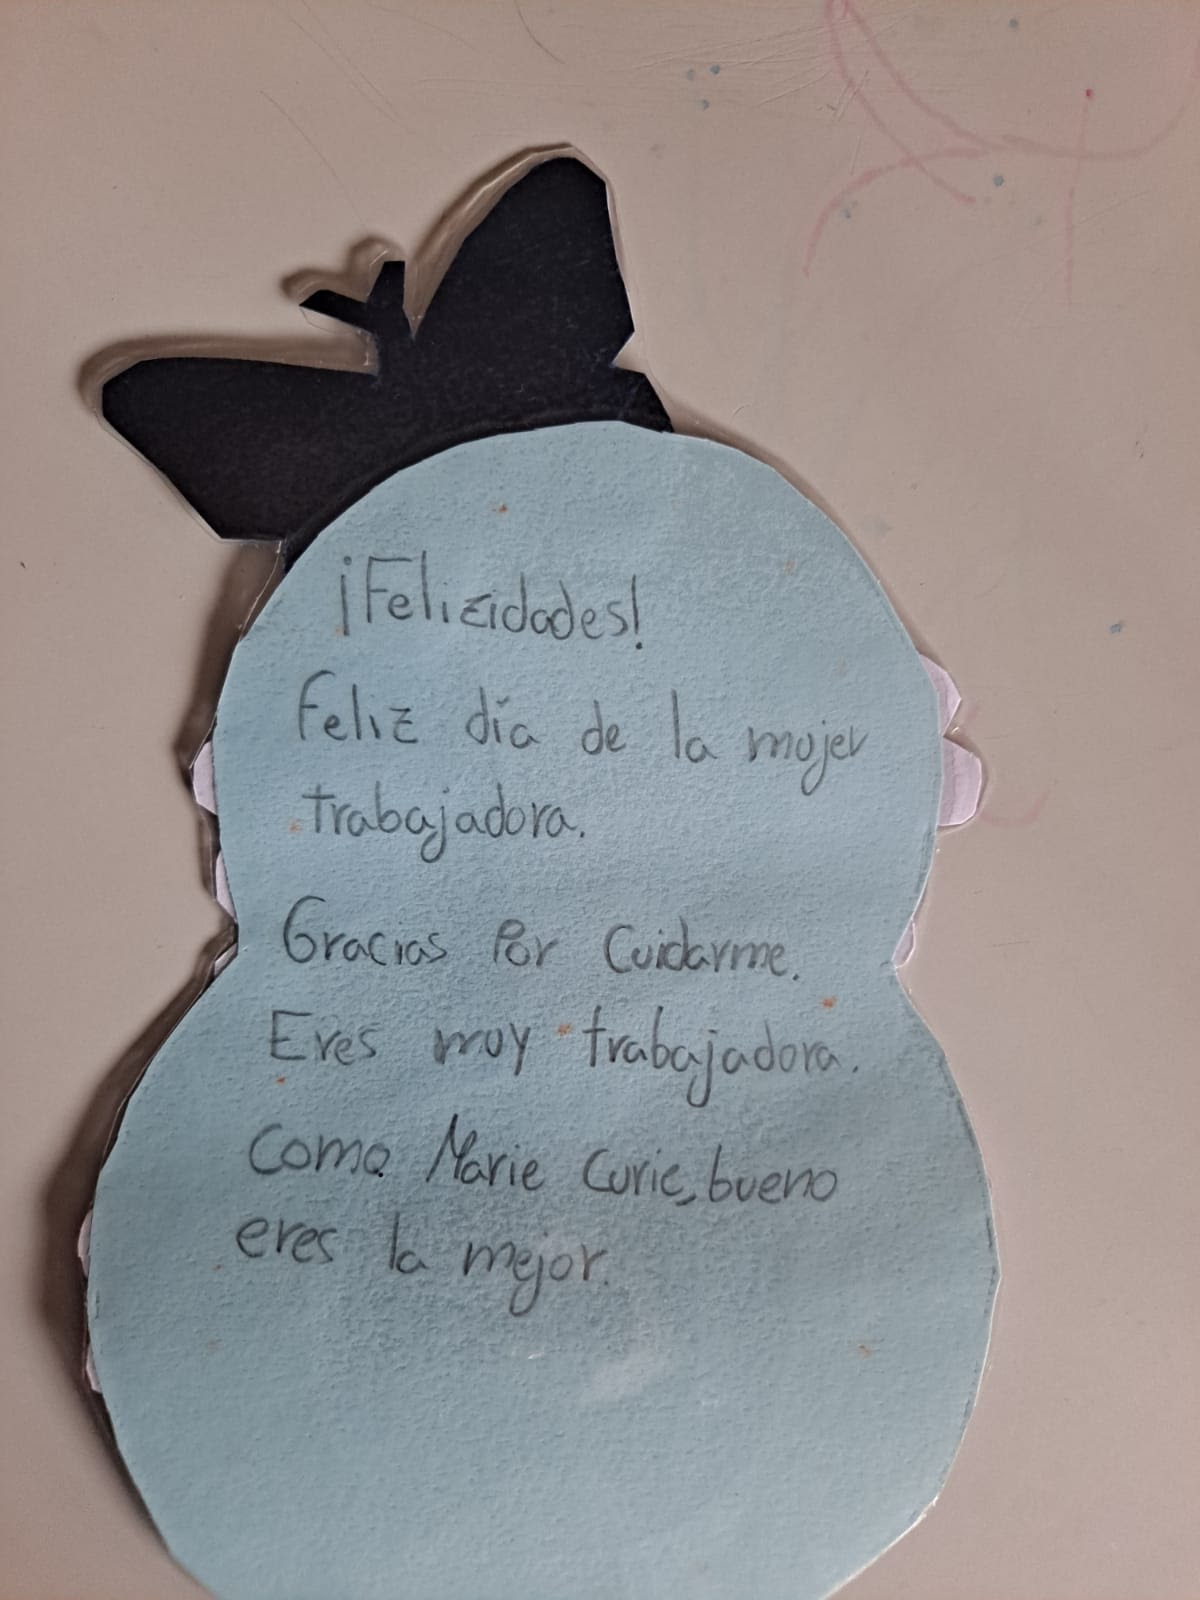 ¡Felizidades!
Feliz día de la mujer
trabajadora.
Gracias Por Cuidarme.
Eres muy trabajadora.
Como Marie Curie, bueno
eres la mejor.